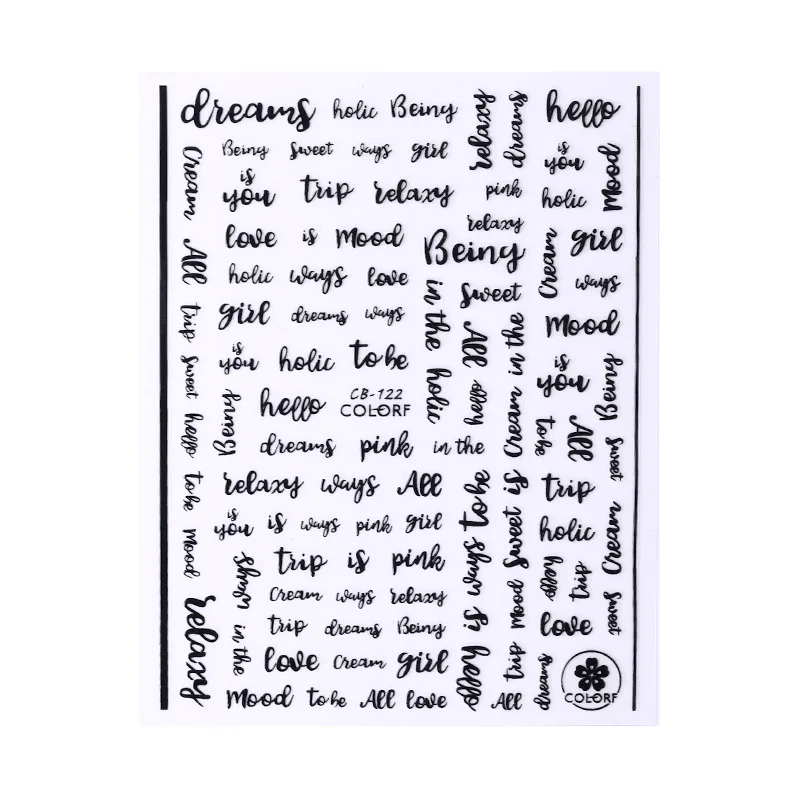 dreams holic Being
relaxy
dreams
hello
Cream
Being sweet ways girl
is
you
Mood
is
you trip relaxy pink
holic
relaxy
love is Mood
Being
Cream
girl
All
holic ways love
in the holic
sweet
ways
girl dreams ways
trip
All
Cream in the
Mood
is
you holic to be
sweet
is
you
Being
Being
hello
CB-122
COLORF
hello
hello
to be
All
sweet
dreams pink in the
to be
relaxy ways All
hello is ways to be
trip Mood sweet is
trip
Cream
is
you is ways pink girl
holic
Mood
trip is pink
always in the
hello
trip
sweet
Cream ways relaxy
relaxy
trip dreams Being
love
love Cream girl
dreams
Mood to be All love
All
COLORF